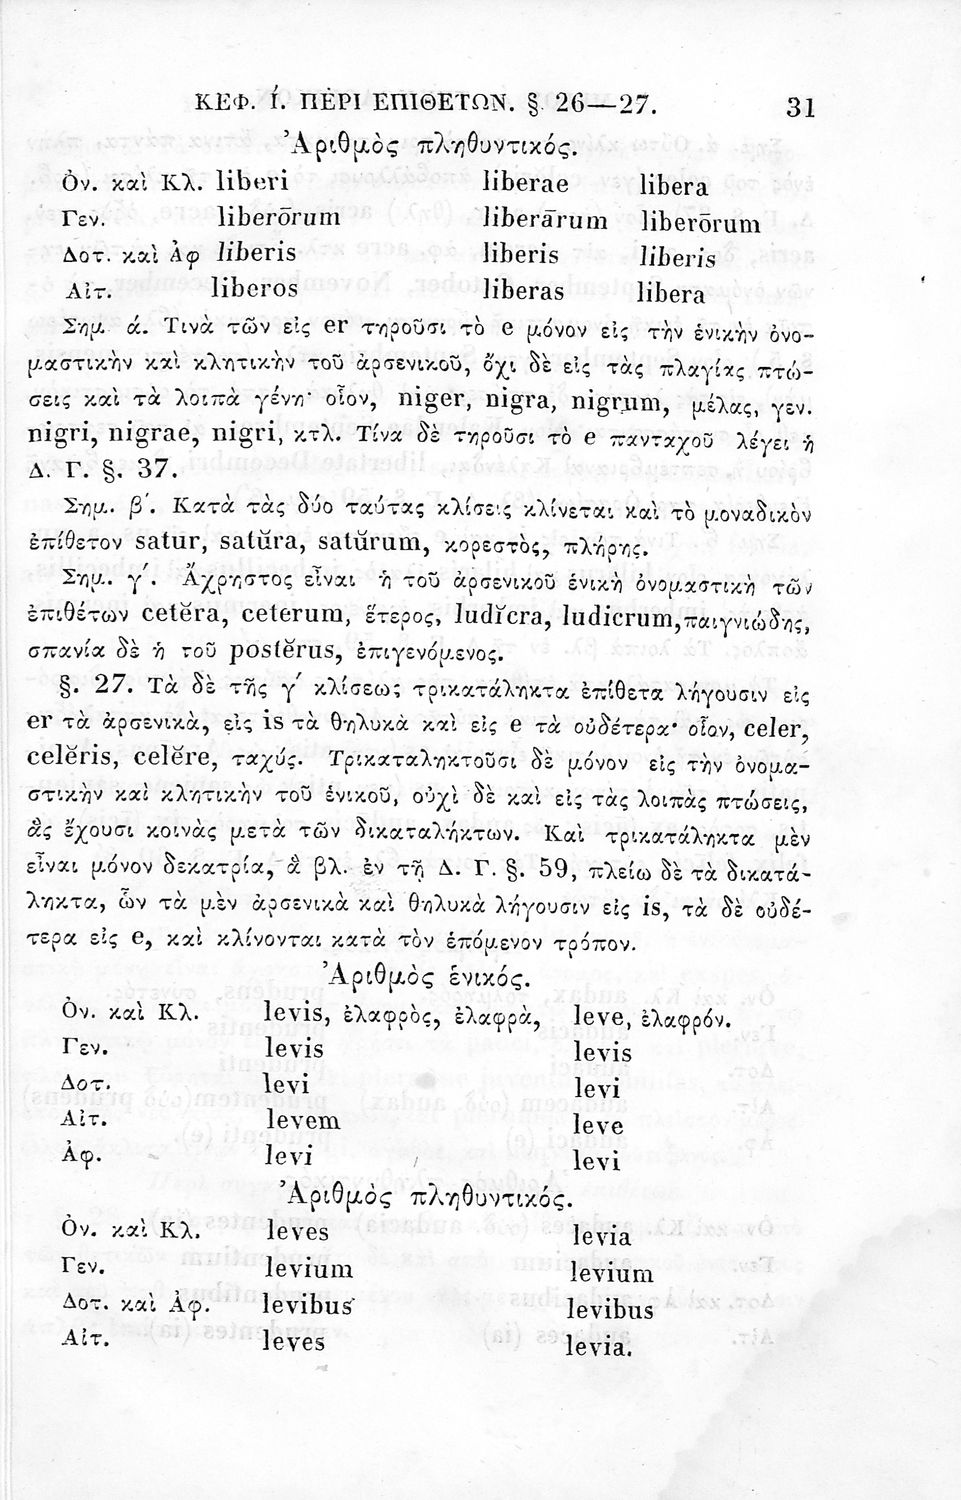 ΚΕΦ. Ι΄. ΠΕΡΙ ΕΠΙΘΕΤΩΝ. §. 26—27. 31
Ἀριθμὸς πληθυντικός.
Ὀν. καὶ Κλ. liberi liberae libera
Γεν. liberōrum liberārum liberōrum
Δοτ. καὶ Ἀφ liberis liberis liberis
Αἰτ. liberos liberas libera
Σημ. ά. Τινὰ τῶν εἰς er τηροῦσι τὸ e μόνον εἰς τὴν ἑνικὴν ὀνο-
μαστικὴν καὶ κλητικὴν τοῦ ἀρσενικοῦ, ὄχι δὲ εἰς τὰς πλαγίας πτώ-
σεις καὶ τὰ λοιπὰ γένη· οἷον, niger, nigra, nigrum, μέλας, γεν.
nigri, nigrae, nigri, κτλ. Τίνα δὲ τηροῦσι τὸ e πανταχοῦ λέγει ἡ
Δ. Γ. §. 37.
Σημ. β΄. Κατὰ τὰς δύο ταύτας κλίσεις κλίνεται καὶ τὸ μοναδικὸν
ἐπίθετον satur, satŭra, satŭrum, κορεστὸς, πλήρης.
Σημ. γ΄. Ἄχρηστος εἶναι ἡ τοῦ ἀρσενικοῦ ἑνικὴ ὀνομαστικὴ τῶν
ἐπιθέτων cetĕra, ceterum, ἕτερος, ludĭcra, ludicrum, παιγνιώδης,
σπανία δὲ ἡ τοῦ postĕrus, ἐπιγενόμενος.
§. 27. Τὰ δὲ τῆς γ΄ κλίσεως τρικατάληκτα ἐπίθετα λήγουσιν εἰς
er τὰ ἀρσενικὰ, εἰς is τὰ θηλυκὰ καὶ εἰς e τὰ οὐδέτερα· οἷον, celer,
celĕris, celĕre, ταχύς. Τρικαταληκτοῦσι δὲ μόνον εἰς τὴν ὀνομα-
στικὴν καὶ κλητικὴν τοῦ ἑνικοῦ, οὐχὶ δὲ καὶ εἰς τὰς λοιπὰς πτώσεις,
ἃς ἔχουσι κοινὰς μετὰ τῶν δικαταλήκτων. Καὶ τρικατάληκτα μὲν
εἶναι μόνον δεκατρία, ἃ βλ. ἐν τῇ Δ. Γ. §. 59, πλείω δὲ τὰ δικατά-
ληκτα, ὧν τὰ μὲν ἀρσενικὰ καὶ θηλυκὰ λήγουσιν εἰς is, τὰ δὲ οὐδέ-
τερα εἰς e, καὶ κλίνονται κατὰ τὸν ἑπόμενον τρόπον.
Ἀριθμὸς ἑνικός.
Ὀν. καὶ Κλ. levis, ἐλαφρὸς, ἐλαφρὰ, leve, ἐλαφρόν.
Γεν. levis levis
Δοτ. levi levi
Αἰτ. levem leve
Ἀφ. levi levi
Ἀριθμὸς πληθυντικός.
Ὀν. καὶ Κλ. leves levia
Γεν. levium levium
Δοτ. καὶ Ἀφ. levibus levibus
Αἰτ. leves levia.